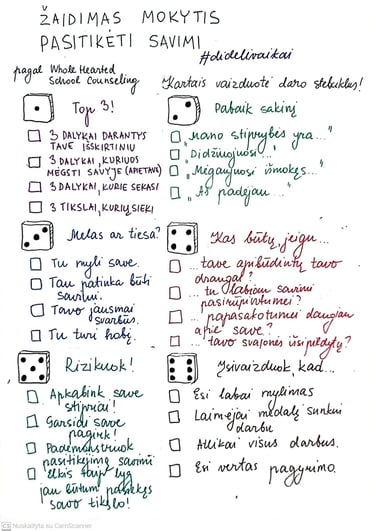 ŽAIDIMAS MOKYTIS
PASITIKĖTI SAVIMI
#didelivaikai
pagal Whole Hearted
School Counseling
Kartais vaizduotė daro stebuklus!
Top 3!
3 DALYKAI DARANTYS
TAVE IŠSKIRTINIU
3 DALYKAI, KURIUOS
MĖGSTI SAVYJE (APIE TAVE)
3 DALYKAI, KURIE SEKASI
3 TIKSLAI, KURIŲ SIEKI
Pabaik sakinį
"Mano stiprybės yra..."
"Didžiuojuosi..."
"Mėgaujuosi išmokęs..."
"Aš padėjau..."
Melas ar tiesa?
Tu myli save.
Tau patinka būti
savimi.
Tavo jausmai
svarbūs.
Tu turi hobį.
Kas būtų, jeigu...
...tave apibūdintų tavo
draugai?
...tu labiau savimi
pasirūpintumei?
...papasakotumei daugiau
apie save?
...tavo svajonės išsipildytų?
Rizikuok!
Apkabink save
stipriai!
Garsiai save
pagirk!
Pademonstruok
pasitikėjimą savimi
elkis taip lyg
jau būtum pasiekęs
savo tikslo!
Įsivaizduok, kad...
Esi labai mylimas
Laimėjai medalį sunkiu
darbu
Atlikai visus darbus.
Esi vertas pagyrimo.
CS Nuskaityta su CamScanner